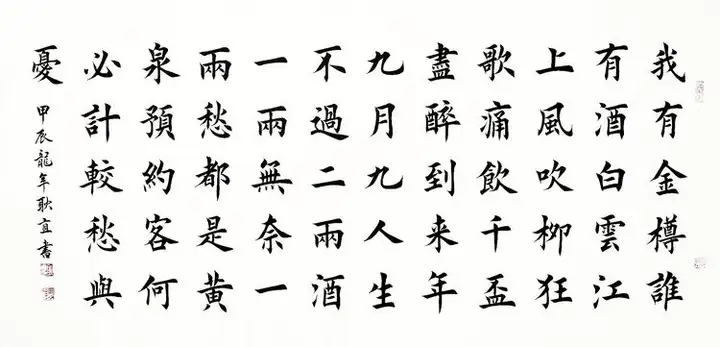 我有金樽誰
有酒白雲江
上風吹柳狂
歌痛飲千盃
盡醉到来年
九月九人生
不過二兩酒
一兩無奈一
兩愁都是黄
泉預約客何
必計較愁與
憂
甲辰龍年耿宜書